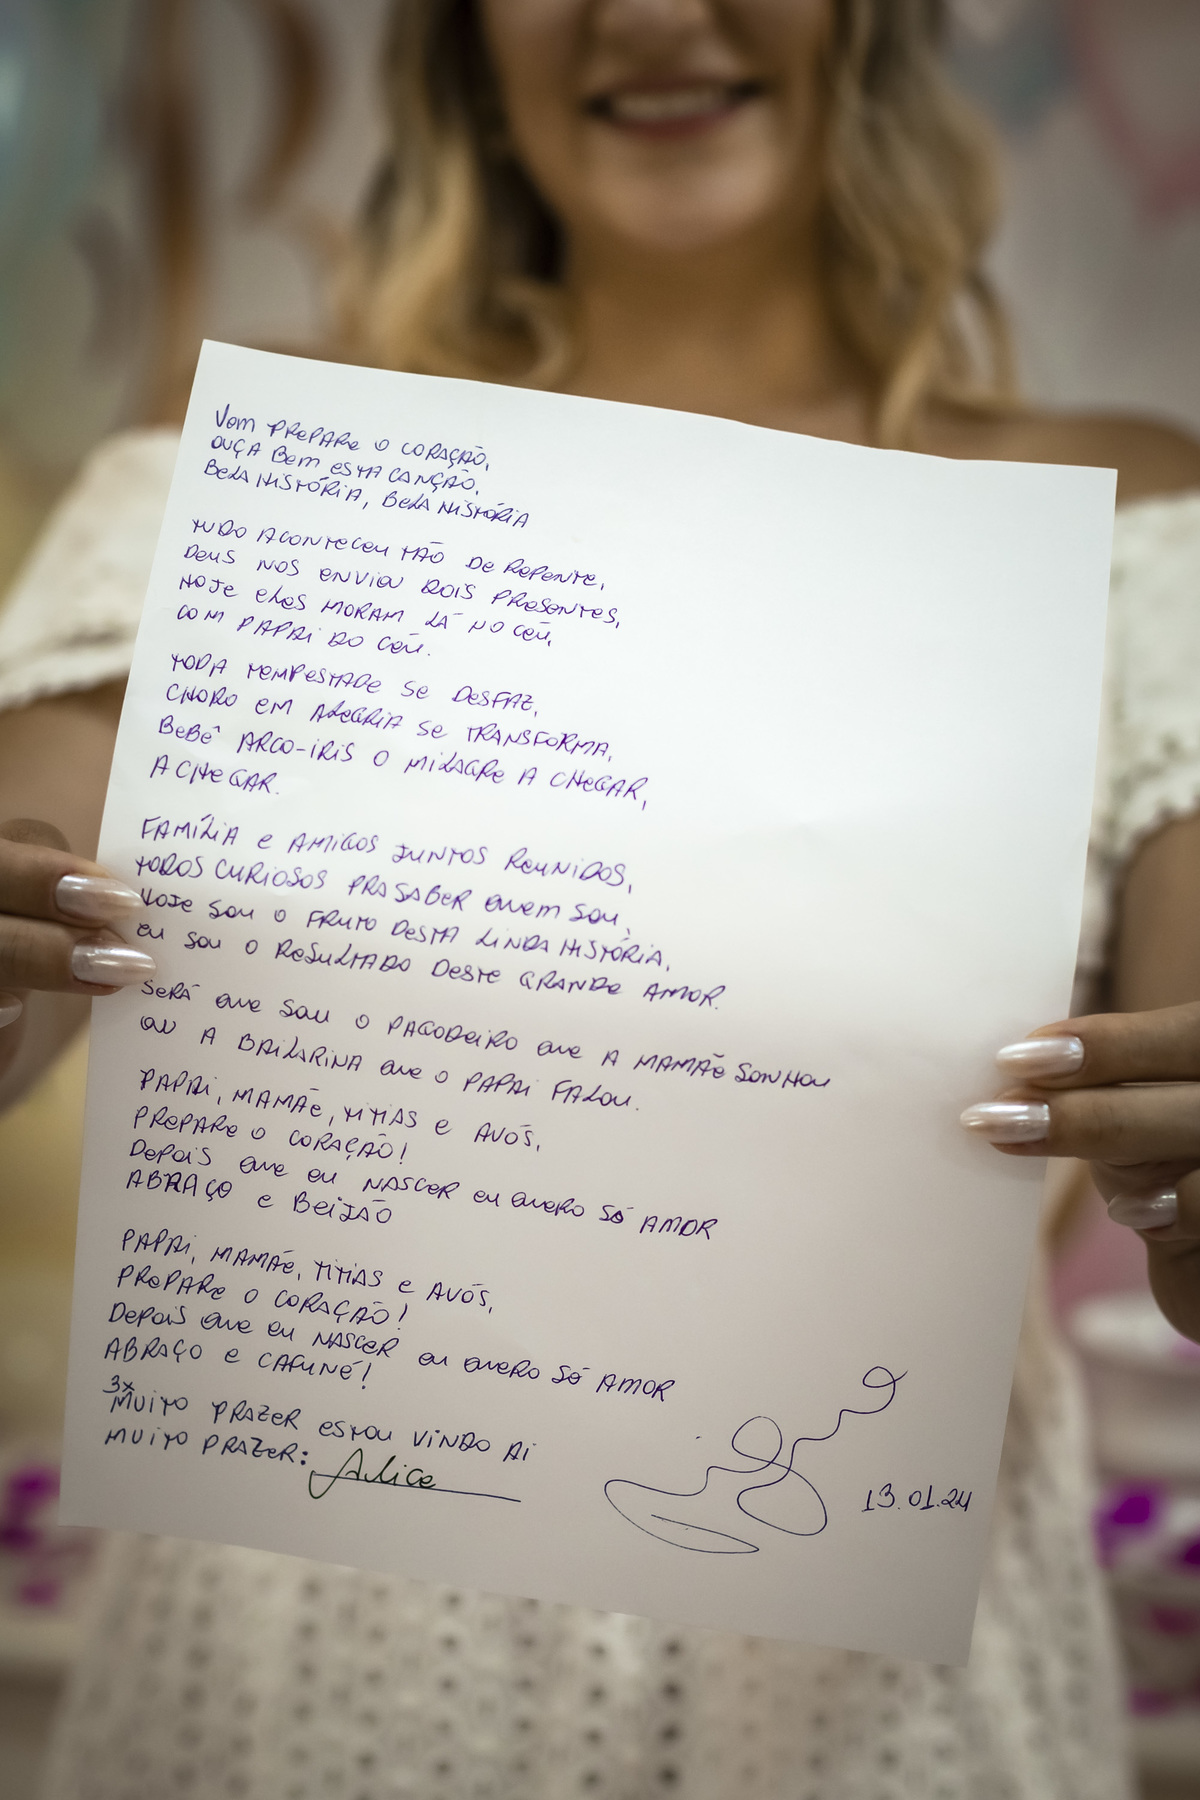 Vem PREPARE O CORAÇÃO,
OUÇA BEM ESTA CANÇÃO,
BELA HISTÓRIA, BELA HISTÓRIA
TUDO ACONTECEU TÃO DE REPENTE,
DEUS NOS ENVIOU DOIS PRESENTES,
HOJE ELES MORAM LÁ NO CÉU,
COM PAPAI DO CÉU.
TODA TEMPESTADE SE DESFAZ,
CHORO EM ALEGRIA SE TRANSFORMA,
BEBÊ ARCO-IRIS O MILAGRE A CHEGAR,
A CHEGAR.
FAMÍLIA E AMIGOS JUNTOS REUNIDOS,
TODOS CURIOSOS PRA SABER QUEM SOU,
HOJE SOU O FRUTO DESTA LINDA HISTÓRIA,
EU SOU O RESULTADO DESTE GRANDE AMOR.
SERÁ QUE SOU O PAGODEIRO QUE A MAMÃE SONHOU
OU A BAILARINA QUE O PAPAI FALOU.
PAPAI, MAMÃE, TITIAS E AVÓS,
PREPARE O CORAÇÃO!
DEPOIS QUE EU NASCER EU QUERO SÓ AMOR
ABRAÇO E BEIJÃO
PAPAI, MAMÃE, TITIAS E AVÓS,
PREPARE O CORAÇÃO!
DEPOIS QUE EU NASCER EU QUERO SÓ AMOR
ABRAÇO E CAFUNÉ!
3x
MUITO PRAZER ESTOU VINDO AI
MUITO PRAZER: Alice
13.01.24